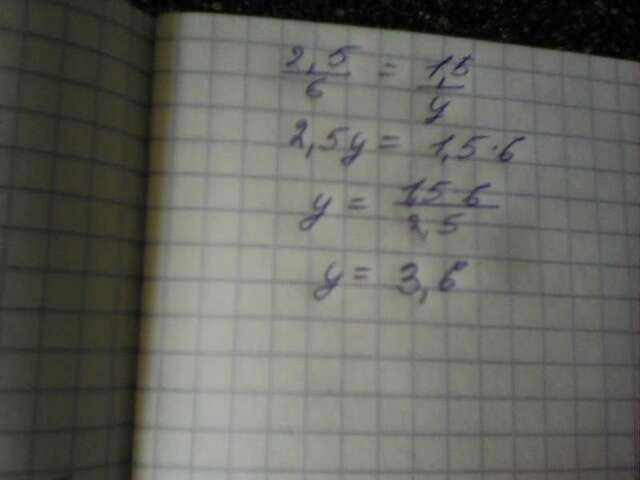 2,5/6 = 1,5/y
2,5y = 1,5·6
y = 1,5·6/2,5
y = 3,6